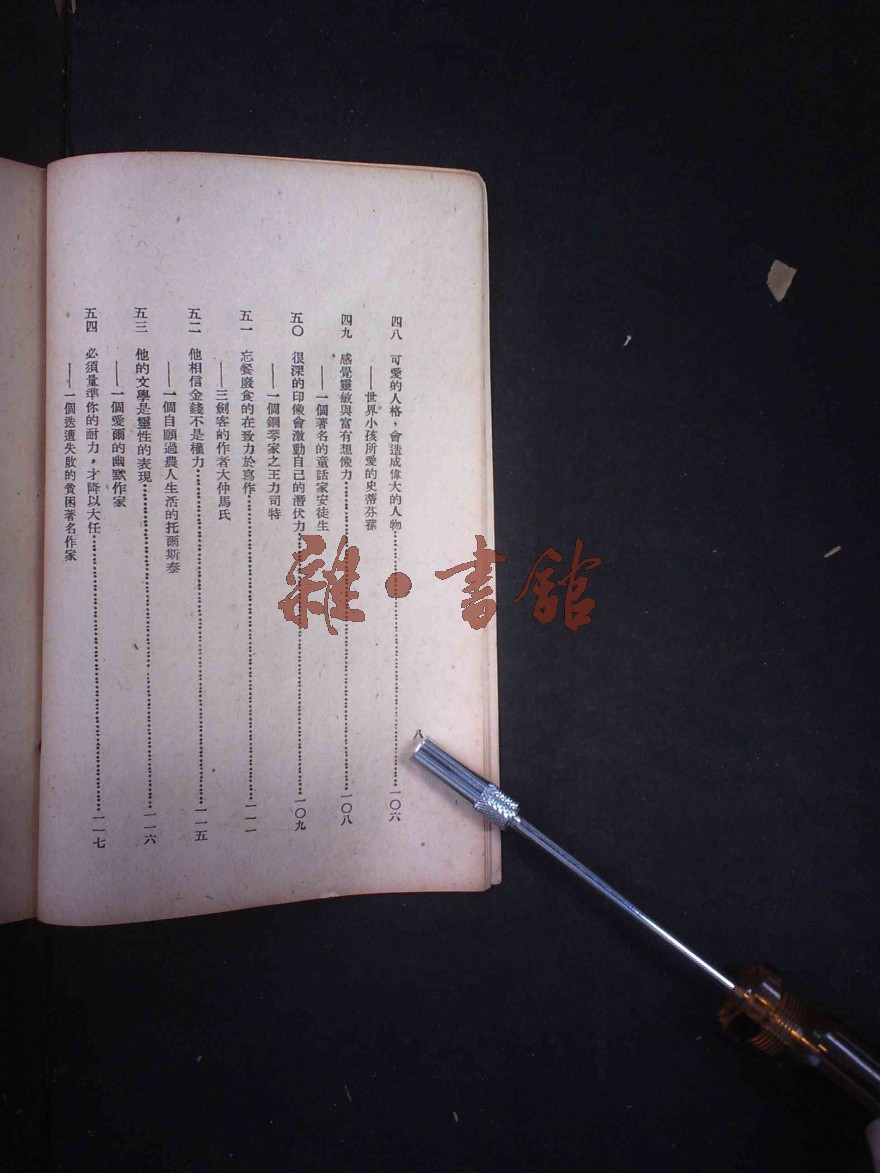 八
四八 可愛的人格，會造成偉大的人物…………一〇六
——世界小孩所愛的史蒂芬蓀
四九 感覺靈敏與富有想像力…………一〇八
——一個著名的童話家安徒生
五〇 很深的印像會激動自己的潛伏力…………一〇九
——一個鋼琴家之王力司特
五一 忘餐廢食的在致力於寫作…………一一一
——三劍客的作者大仲馬氏
五二 他相信金錢不是權力…………一一五
——一個自願過農人生活的托爾斯泰
五三 他的文學是靈性的表現…………一一六
——一個愛爾的幽默作家
五四 必須量準你的耐力，才降以大任…………一一七
——一個迭遭失敗的貧困著名作家
雜·書館